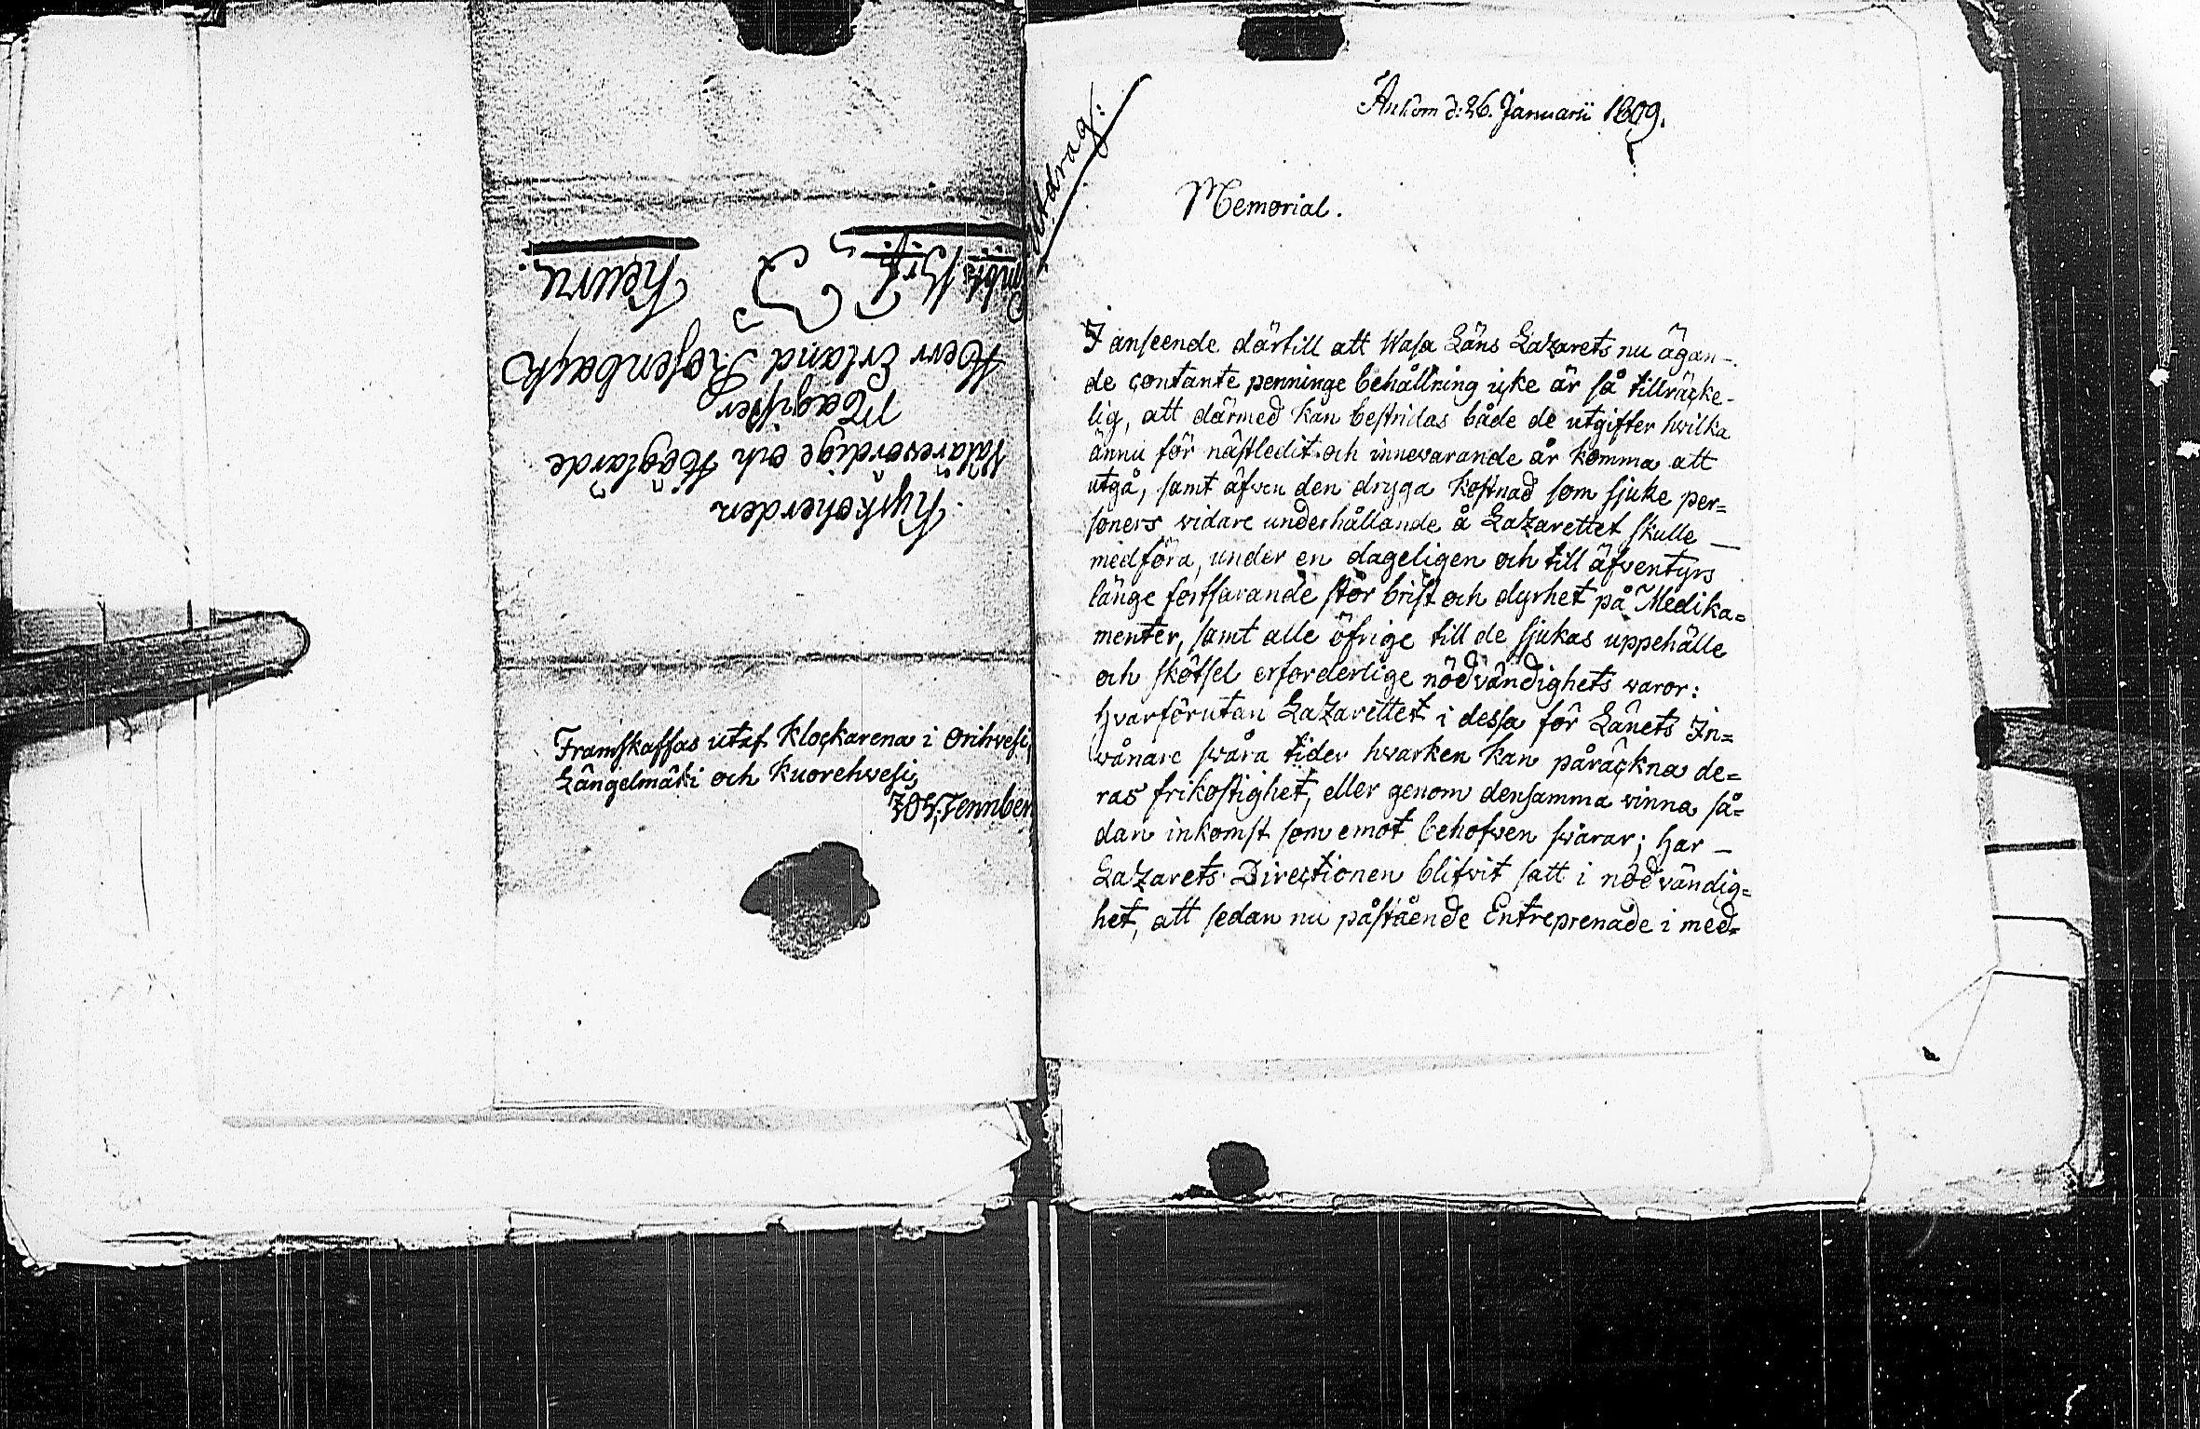 Kyrkoherden
Välärevördige och Höglärde
Magister
Herr Erland Rosenbach
Keuru
Framskaffas utaf Klockarena i Orihvesi,
Längelmäki och Kuorehwesi,
Utdrag:
Ankom d: 26. Januarii 1809.
Memorial.
I anseende därtill att Wasa Läns Lazarets nu ägan-
de contante penninge behållning icke är så tillräcke-
lig, att därmed kan bestridas både de utgifter hwilka
ännu för nästledit och innevarande år komma att
utgå, samt äfven den dryga kostnad som sjuke per=
soners vidare underhållande å Lazarettet skulle —
medföra, under en dageligen och till äfventyrs
länge fortfarande stor brist och dyrhet på Medika=
menter, samt alle öfrige till de sjukas uppehälle
och skötsel erforderlige nödvändighets varor:
hvarförutan Lazarettet i dessa för Länets In=
vånare svåra tider hwarken kan påräckna de=
ras frikostighet, eller genom densamma vinna så=
dan inkomst som emot behofven svarar; har —
Lazarets Directionen blifvit satt i nödvändig=
het, att sedan nu påstående Entreprenade i med=